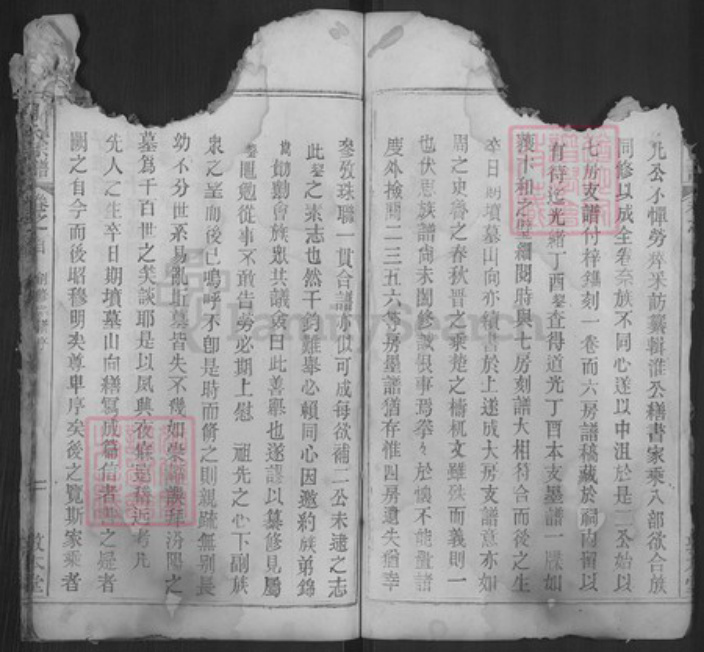 九公不憚勞瘁采訪纂輯淮公繕書家乘入部欲合族
同修以成全卷奈族不同心遂以中沮於是二公始以
七房支譜付梓鐫刻一卷而六房譜稿藏於祠內留以
有待迄光緒丁酉黎查得道光丁酉本支墨譜一牒如
獲卞和之璧細閱時與七房刻譜大相符合而後之生
卒日期墳墓山向亦續書於上遂成大房支譜意亦如
周之史魯之春秋晉之乘楚之檮杌文雖殊而義則一
也伏思族譜尚未闔修誠恨事焉拳々於懷不能量諸
度外檢閱二三五六等房墨譜猶存惟四房遺失猶幸
參攷珠聯一貫合譜亦似可成每欲補二公未逮之志
此黎之素志也然千鈞難舉必賴同心因邀約族弟錦
勛勳會族眾共議僉曰此善舉也遂謬以纂修見屬
黎黽勉從事不敢告勞必期上慰 祖先之心下副族
眾之望而後已嗚呼不卽是時而脩之則親疏無別長
幼不分世系易亂墳墓皆失不幾如崇韜誤拜汾陽之
墓爲千百世之笑談耶是以夙興夜寐 凡
先人之生卒日期墳墓山向繕寫成篇信者 之疑者
闕之自今而後昭穆明矣尊卑序矣後之覽斯家乘者
宗譜
卷之首
敦本堂
FamilySearch